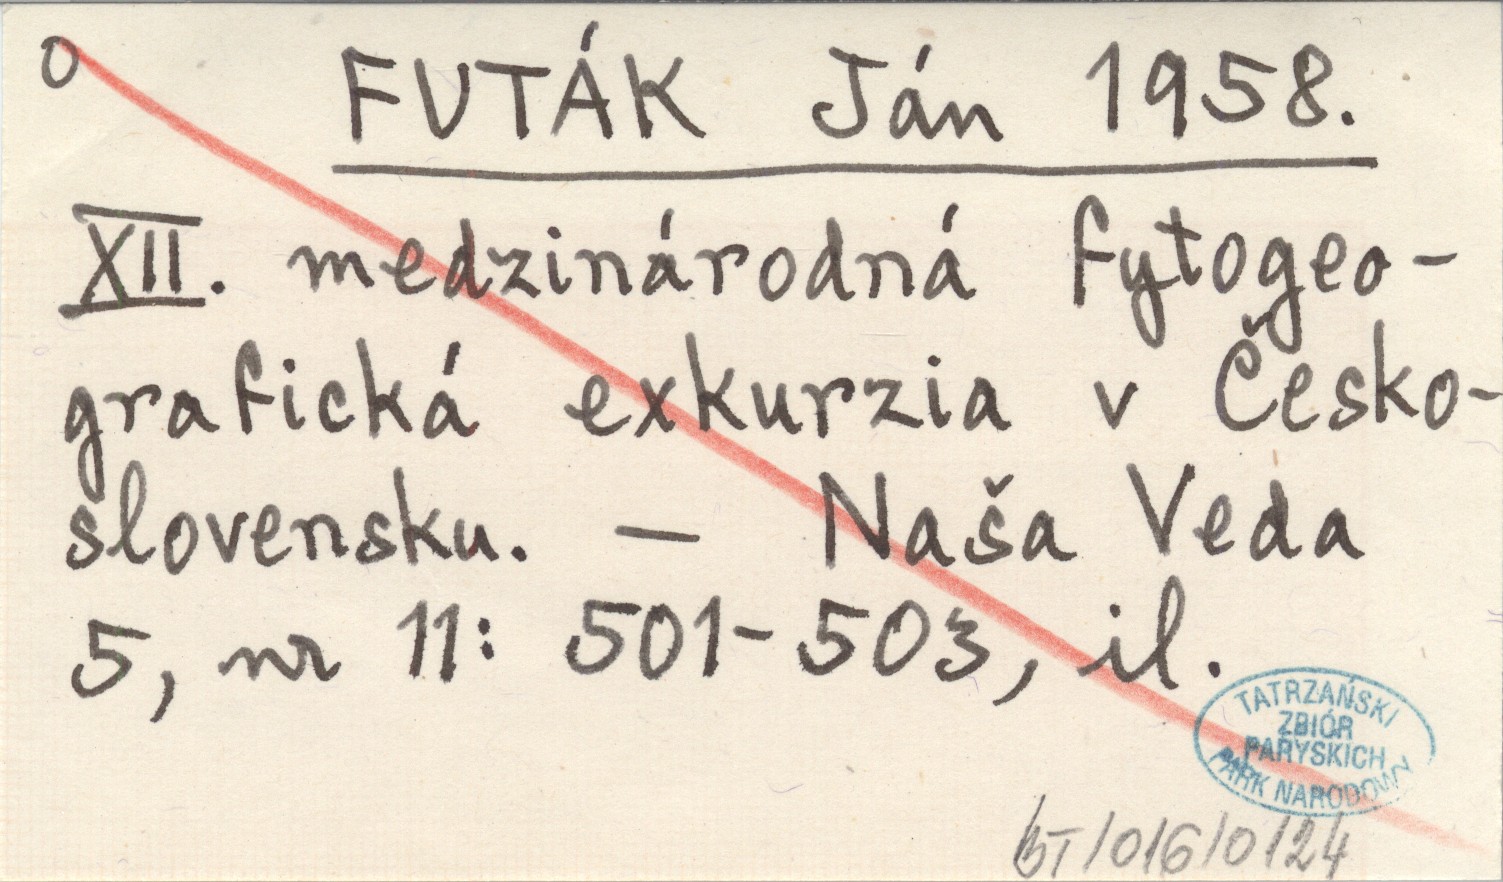 o
FUTÁK Ján 1958.
XII. medzinárodná fytogeo-
grafická exkurzia v Česko-
slovensku. — Naša Veda
5, nr 11: 501-503, il.
TATRZAŃSKI
ZBIÓR
PARYSKICH
PARK NARODOWY
BT/016/0/24